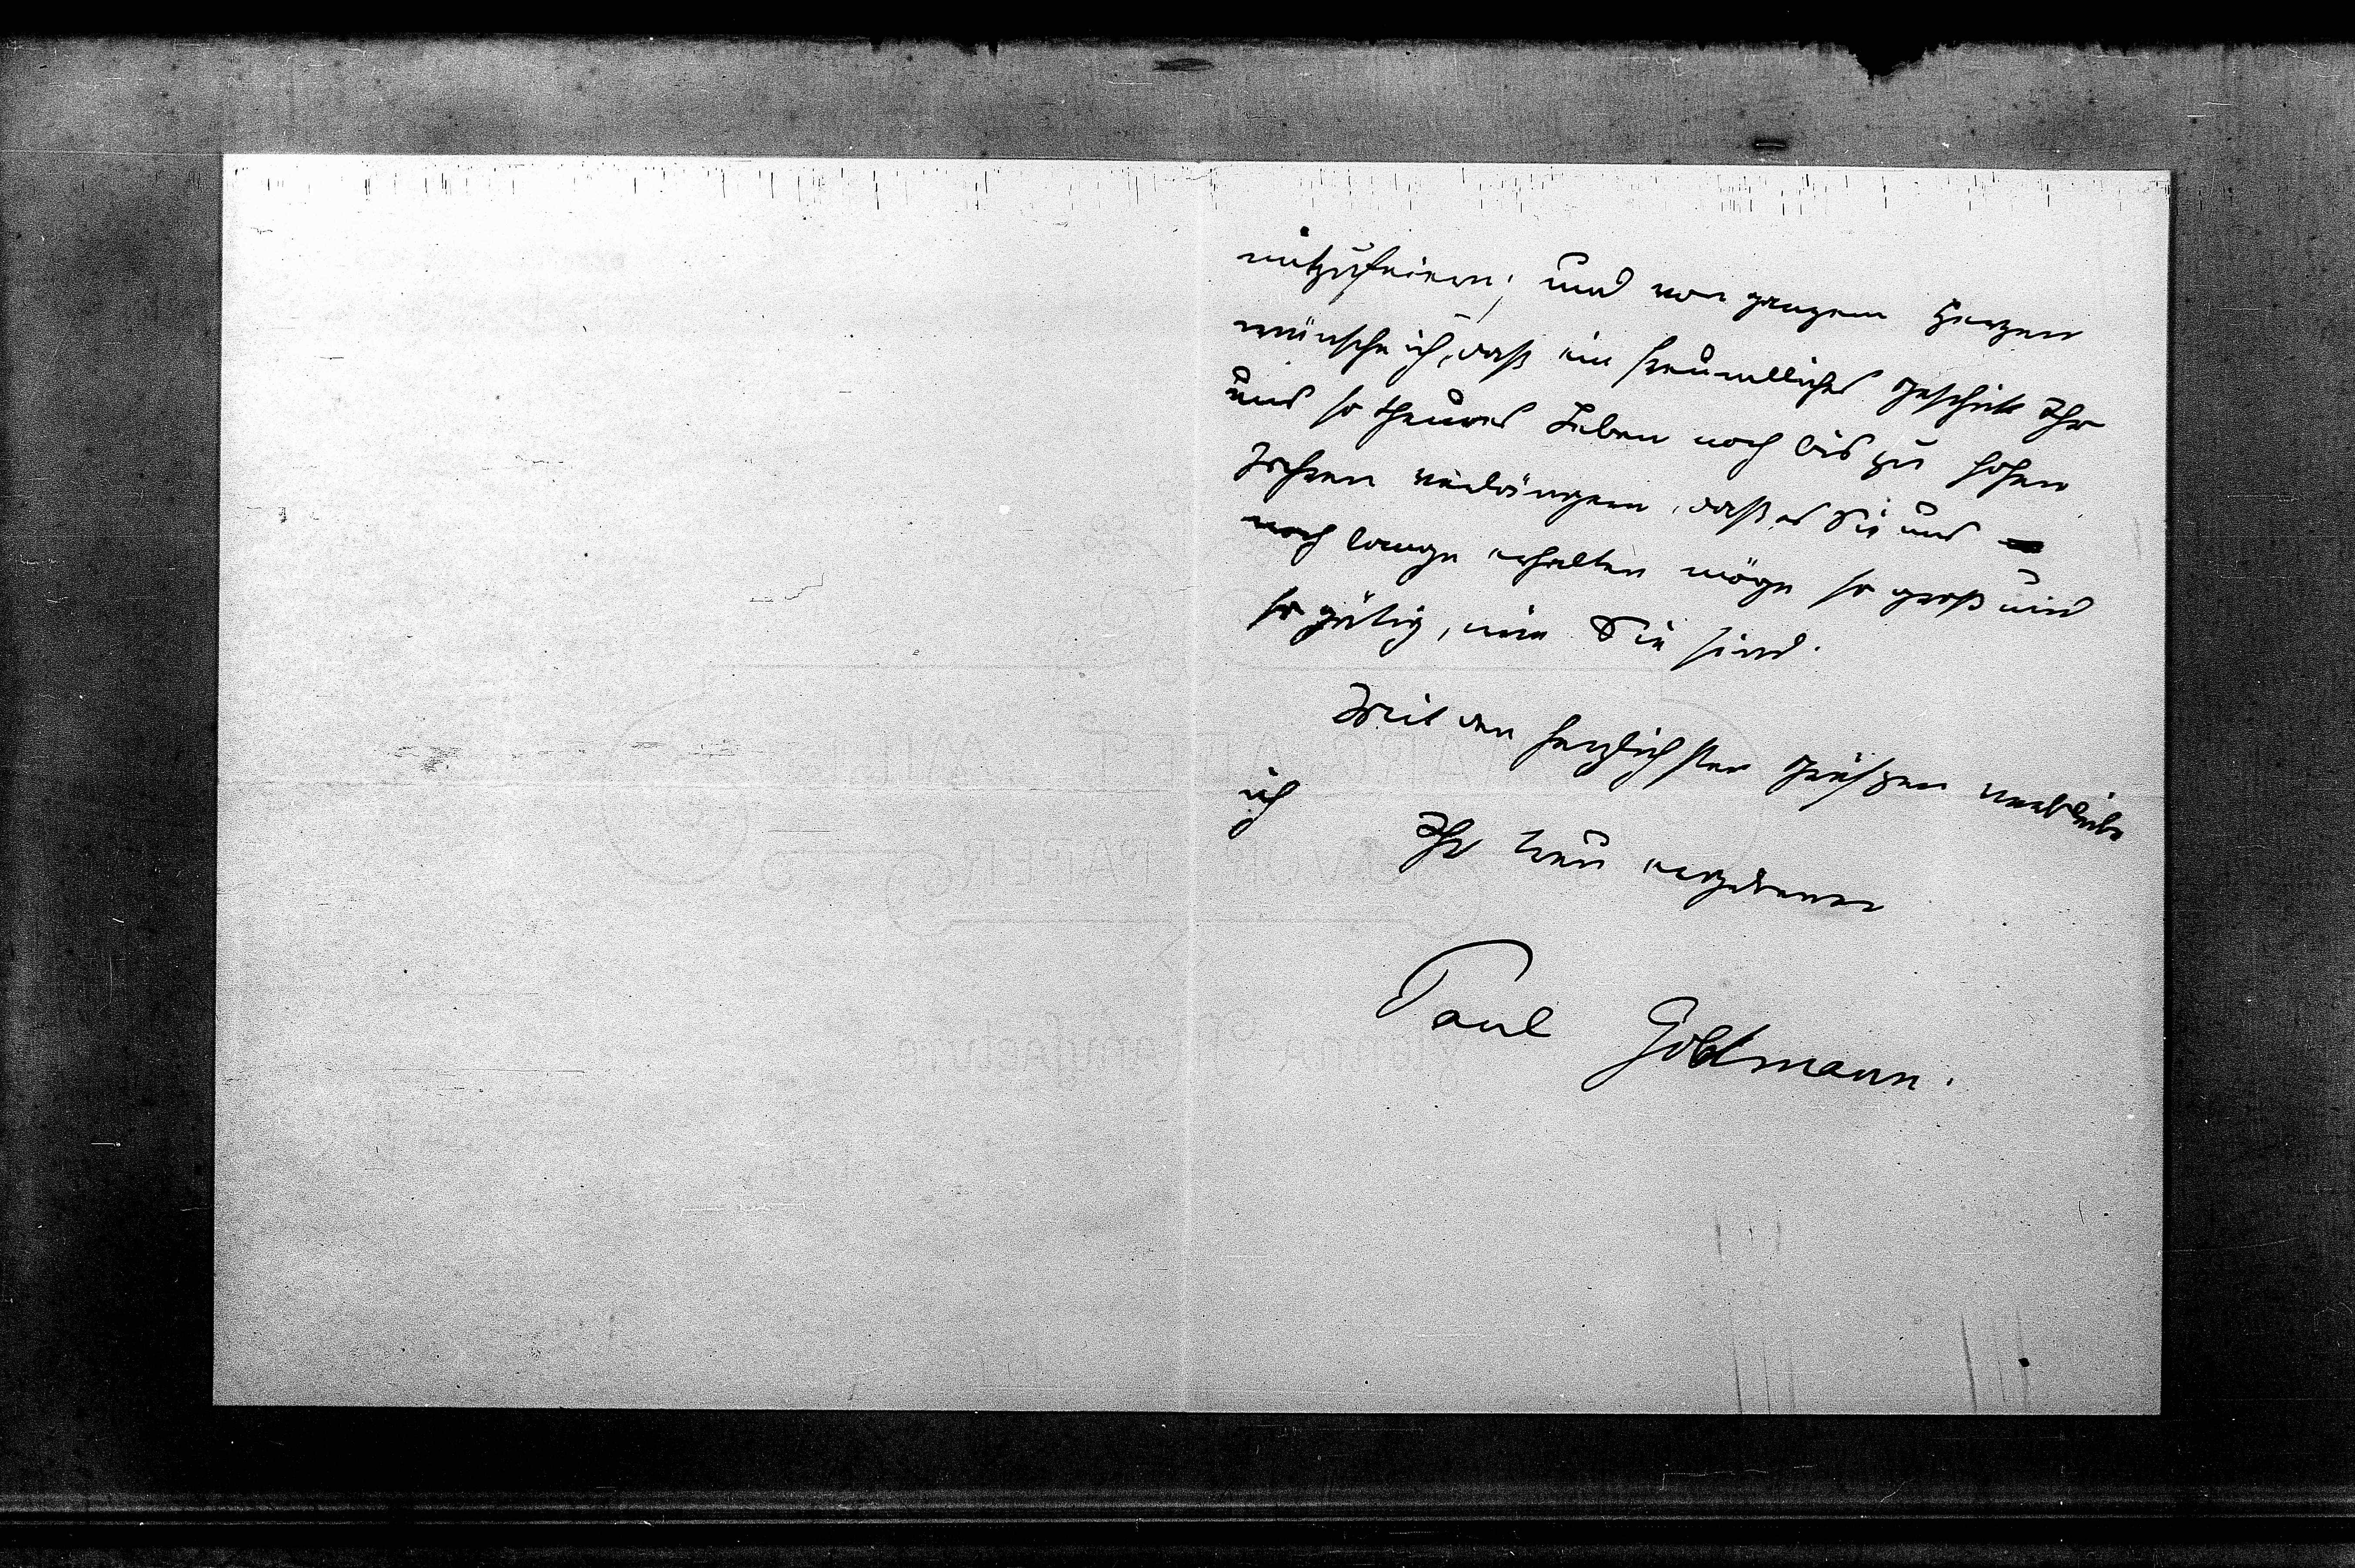 mitzufeiern; und von ganzem Herzen
wünsche ich, daß ein freundliches Geschick Ihr
uns so theures Leben noch bis zu hohen
Jahren verlängern, daß es Sie uns
noch lange erhalten möge so groß und
so gütig, wie Sie sind.
Mit den herzlichsten Grüßen verbleibe
ich
Ihr treu ergebener
Paul Goldmann.